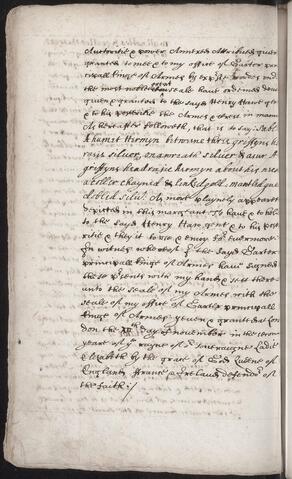 Authoritie & power Annexed Attributed given
granted to me & to my office of Garter prin
cipall kinge of Armes by expresse wordes under
the most noble seale haue ordeined and
given & granted to the sayd Henry Ham &
to his posteritie the Armes & crest in manner
As hereafter followeth, that is to say: Sable
A humet Hermyn betwene three griffyns he
rasis siluer, on a wreath siluer & azur A
griffyns head rasie hermyn about his neck
a coller chayned & leashed gold, manteled gueu
dobled silver. As more playnly appeareth
depicted in this margent To haue & to hold
to the sayd Henry Ham gent & to his poste
ritie they it to vse & enioy for euermore.
In witnes wherof I the sayd Garter
principall kinge of Armes haue signed
these presents with my hand & sett there
unto the seale of my Armes with the
seale of my office of Garter principall
kinge of Armes yeven & granted at Lon
don the day of November in the
yeare of the raigne of or soueraigne Ladie
Elizabeth by the grace of God Queene of
England, France & Ireland, defendor of
the faith :/